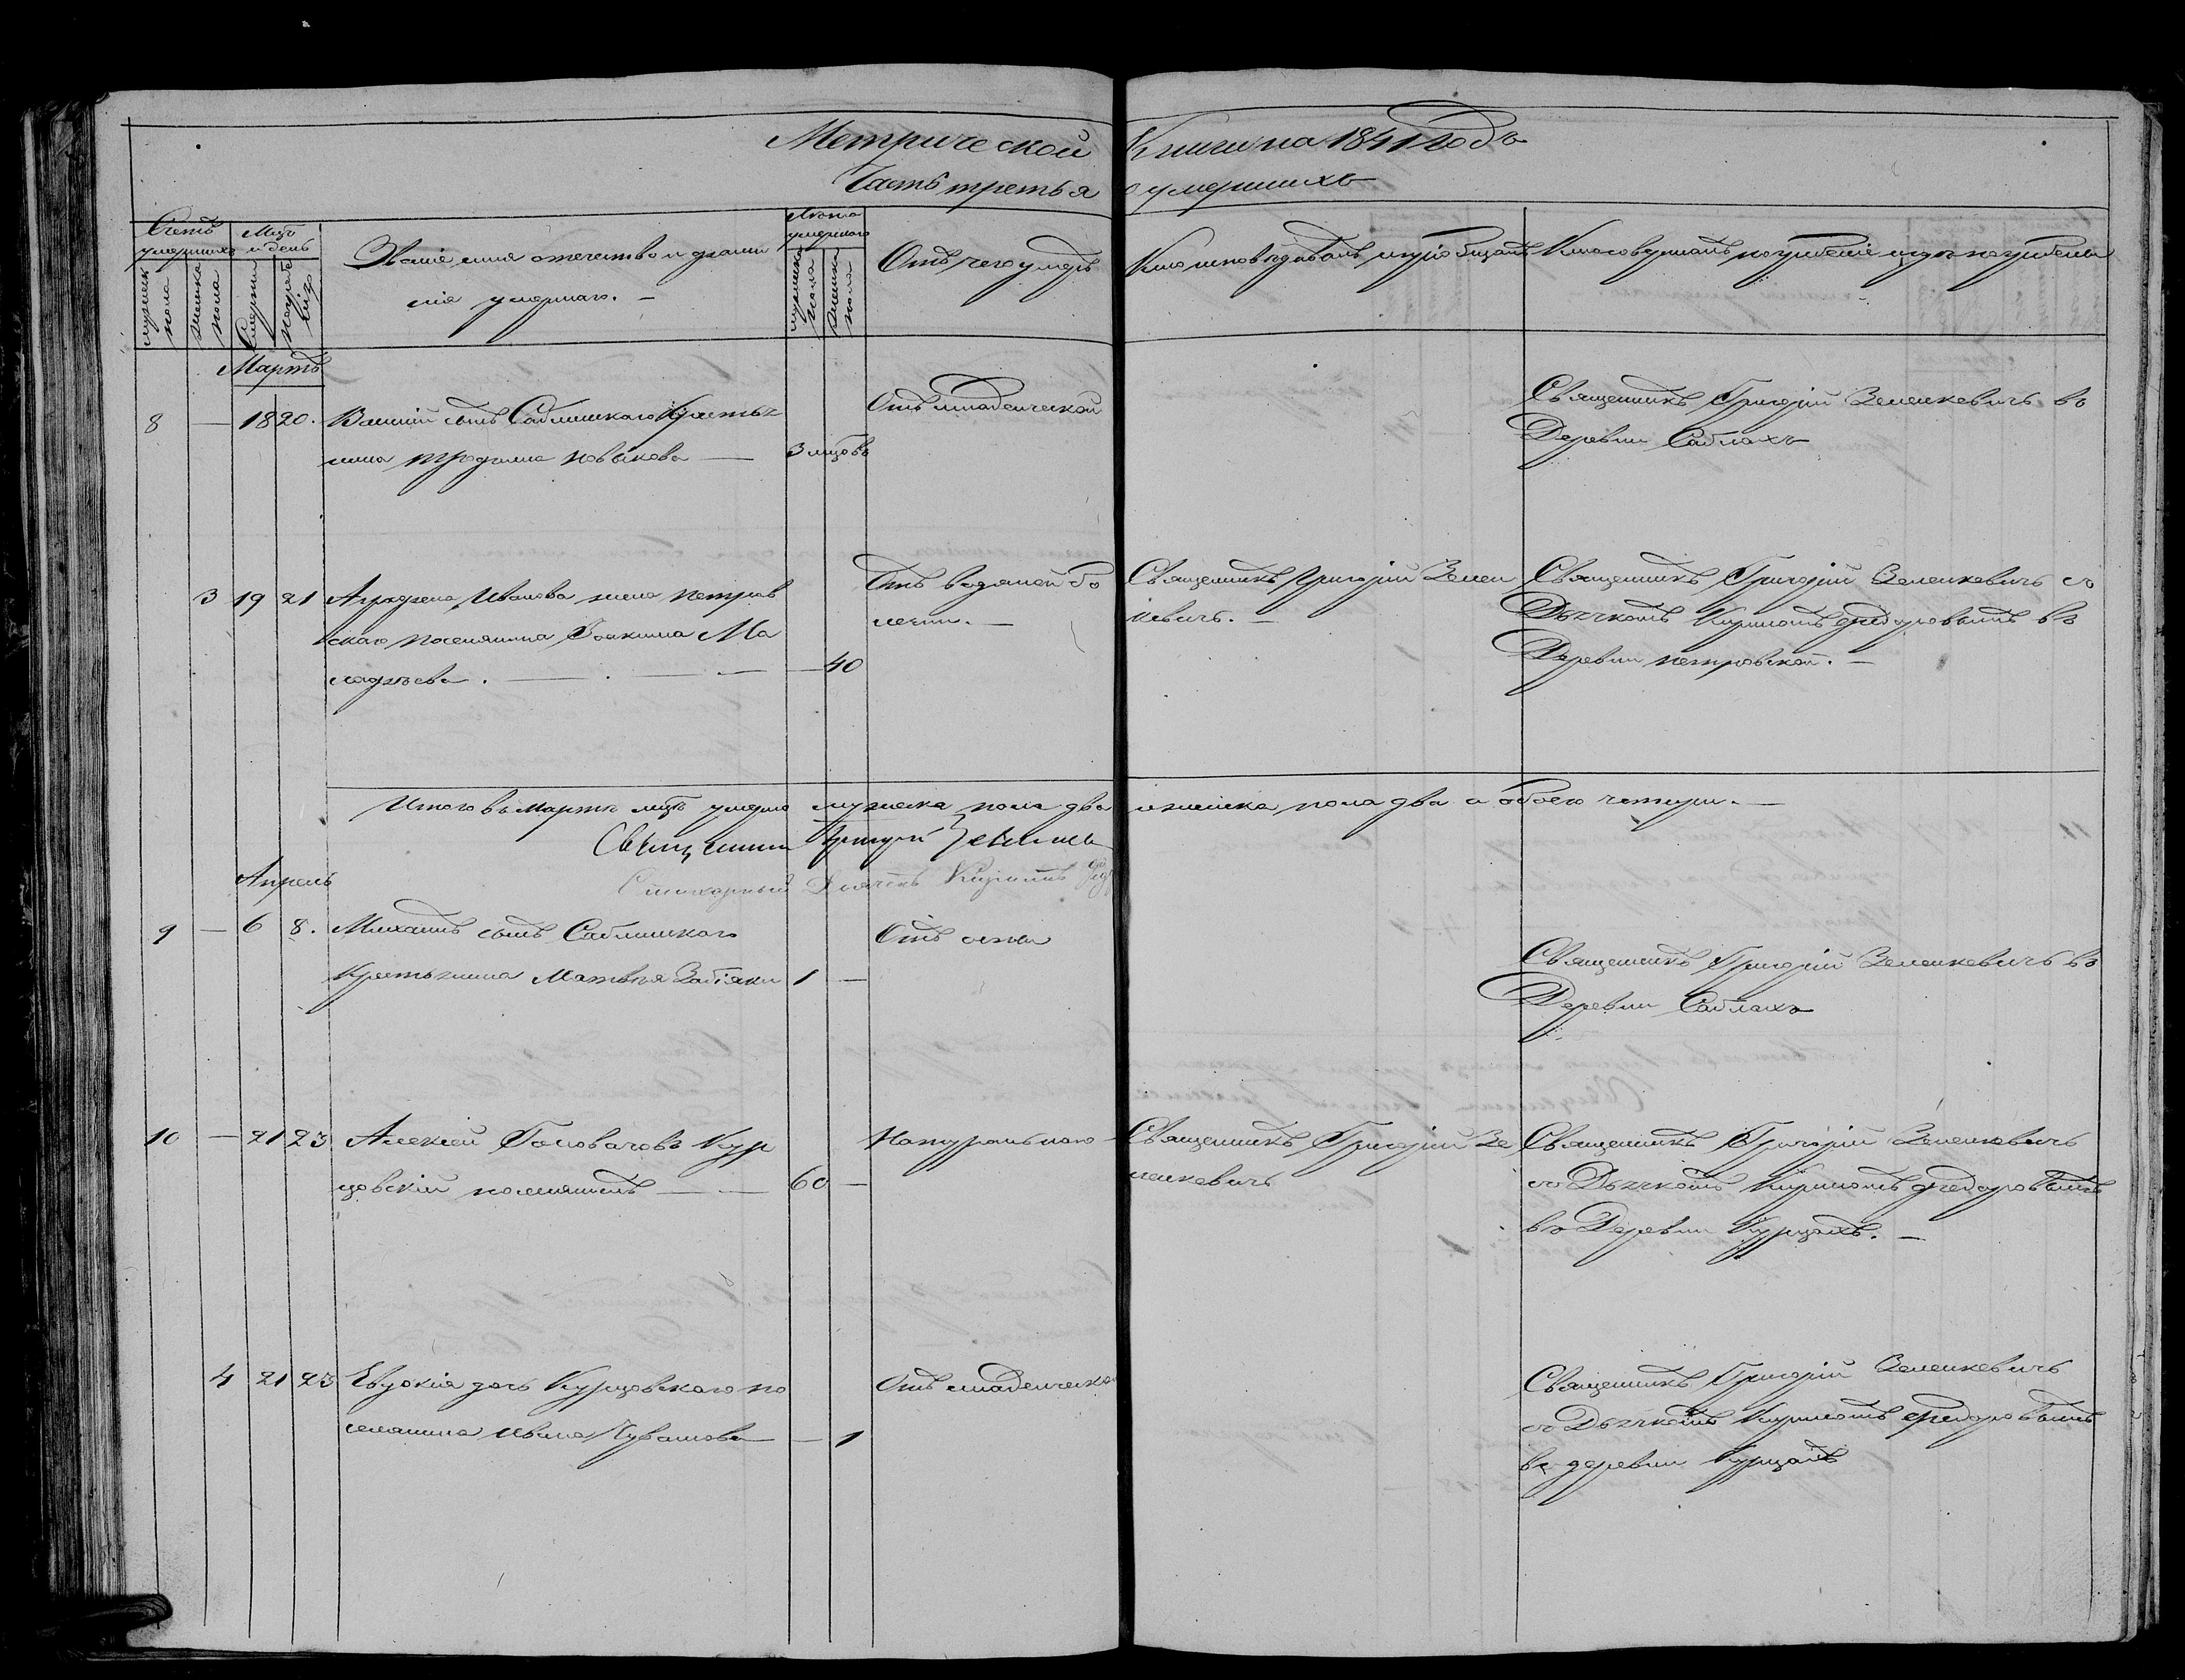 Метрической Книги на 1841 годъ
Часть третья о умершихъ
Счетъ умершихъ
мужеск пола
женска пола
Мцъ и день
Смерти
погребе нія
Званіе имя отечество и фами
лія умершаго. —
Лета умершаго
мужеска пола
женска пола
Отъ чего умеръ
Кто исповедавалъ и пріобщалъ
Кто совершалъ погребеніе и где погребены
Мартъ
8 — 18 20. сынъ Саблинскаго Крестья
нина Новикова — 3 мцовъ
Отъ младенческой
Священникъ Григорій Зеленкевичъ въ
Деревни Саблахъ
3 19 21 Агрофена Иванова жена петров
скаго поселянина Іоакима Ма
— 40
Отъ водяной бо
лезни. —
Священникъ Григорій Зелен
кевичъ. —
Священникъ Григорій Зеленкевичъ со
Дьячкомъ Кириломъ Федоровымъ въ
Деревни петровской. —
Итого въ Мартъ мцъ умерло мужеска пола два и женска пола два а обоего четыри. —
Священникъ Григорій
Стихарный Дьячекъ Кирилъ Фед
Апрель
9 — 6 8. Михаилъ сынъ Саблинскаго
Крестьянина Матвея Забіяки 1 —
Отъ оспы
Священникъ Григорій Зеленкевичъ въ
Деревни Саблахъ
10 — 21 23 Алексей Головачовъ Кур
цовскій поселянинъ — — 60 —
Натуральною
Священникъ Григорій Зе
ленкевичъ
Священникъ Григорій Зеленкевичъ
со Дьячкомъ Кириломъ Федоровымъ
въ Деревни Курцахъ. —
4 21 23 Евдокія дочь Курцовскаго по
селянина Ивана Чувашова — 1
Отъ младенческо
Священникъ Григорій Зеленкевичъ
со Дьячкомъ Кириломъ Федоровымъ
въ деревни Курцахъ